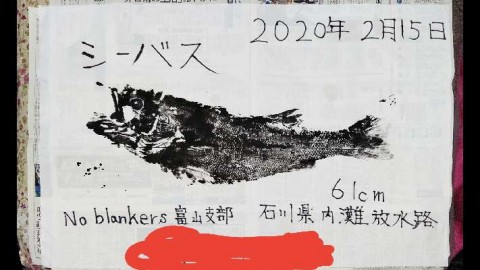 2020年 2月15日
シーバス
61cm
No blankers 富山支部 石川県 内灘 放水路